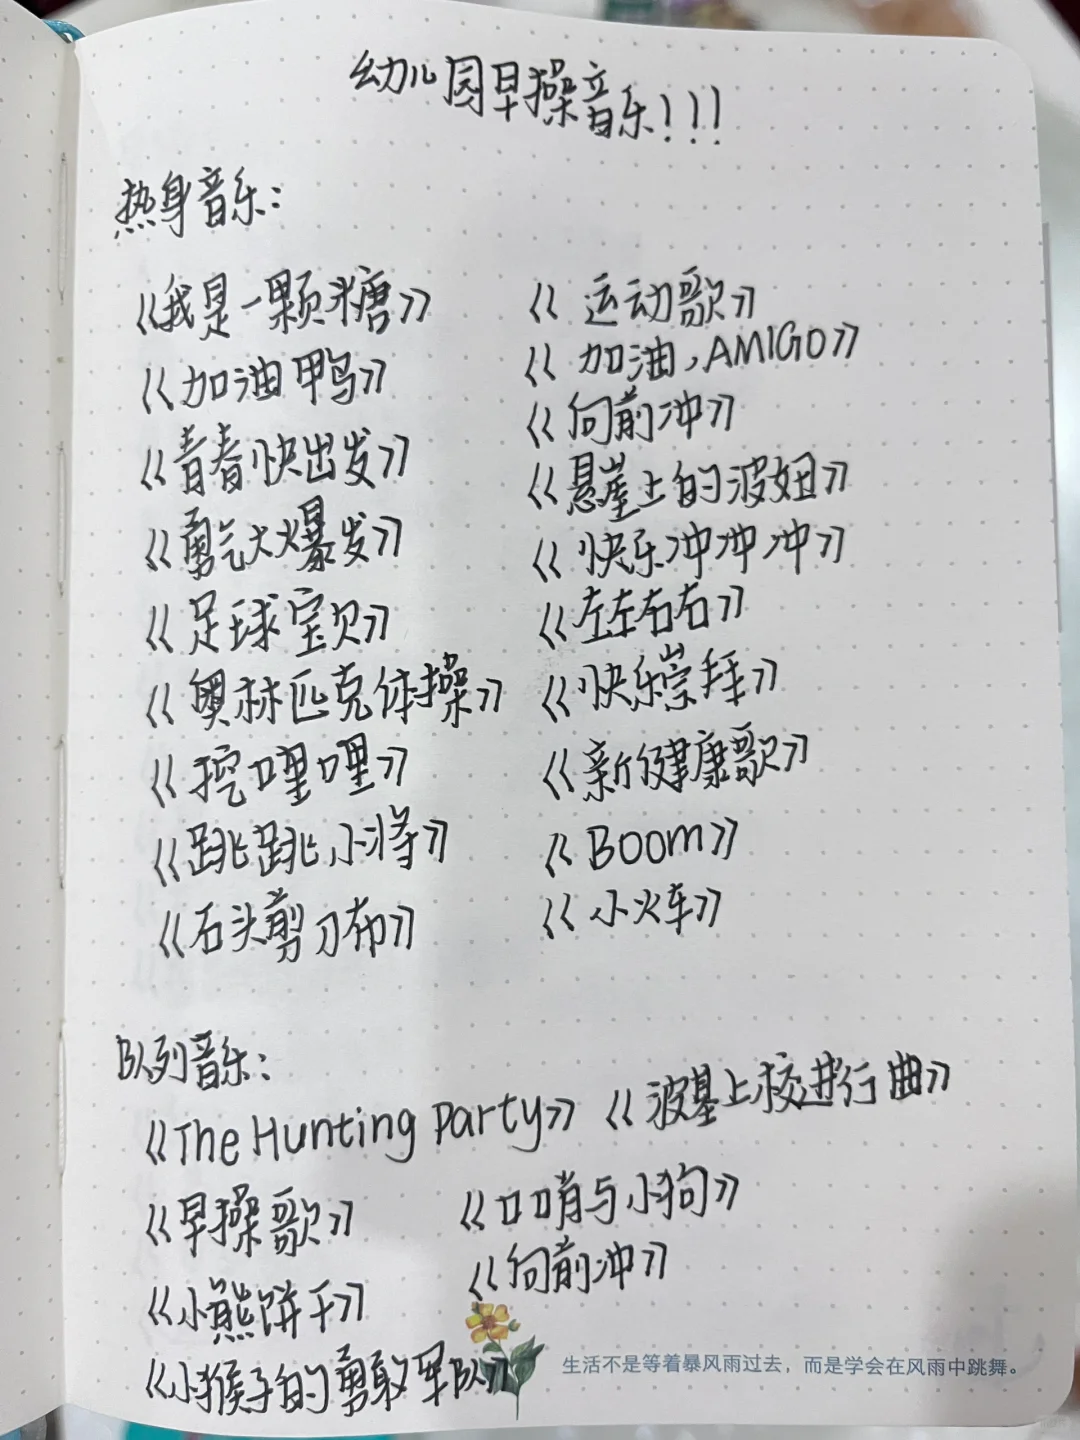 幼儿园早操音乐!!!
热身音乐:
《我是一颗糖》 《运动歌》
《加油鸭》 《加油,AMIGO》
《青春快出发》 《向前冲》
《勇气大爆发》 《悬崖上的波妞》
《足球宝贝》 《快乐冲冲冲》
《奥林匹克体操》 《左左右右》
《挖哩哩》 《快乐崇拜》
《跳跳小将》 《新健康歌》
《石头剪刀布》 《BOOM》
《小火车》
队列音乐:
《The Hunting Party》 《波基上校进行曲》
《早操歌》 《口哨与小狗》
《小熊饼干》 《向前冲》
《小猴子的勇敢军队》
生活不是等着暴风雨过去，而是学会在风雨中跳舞。